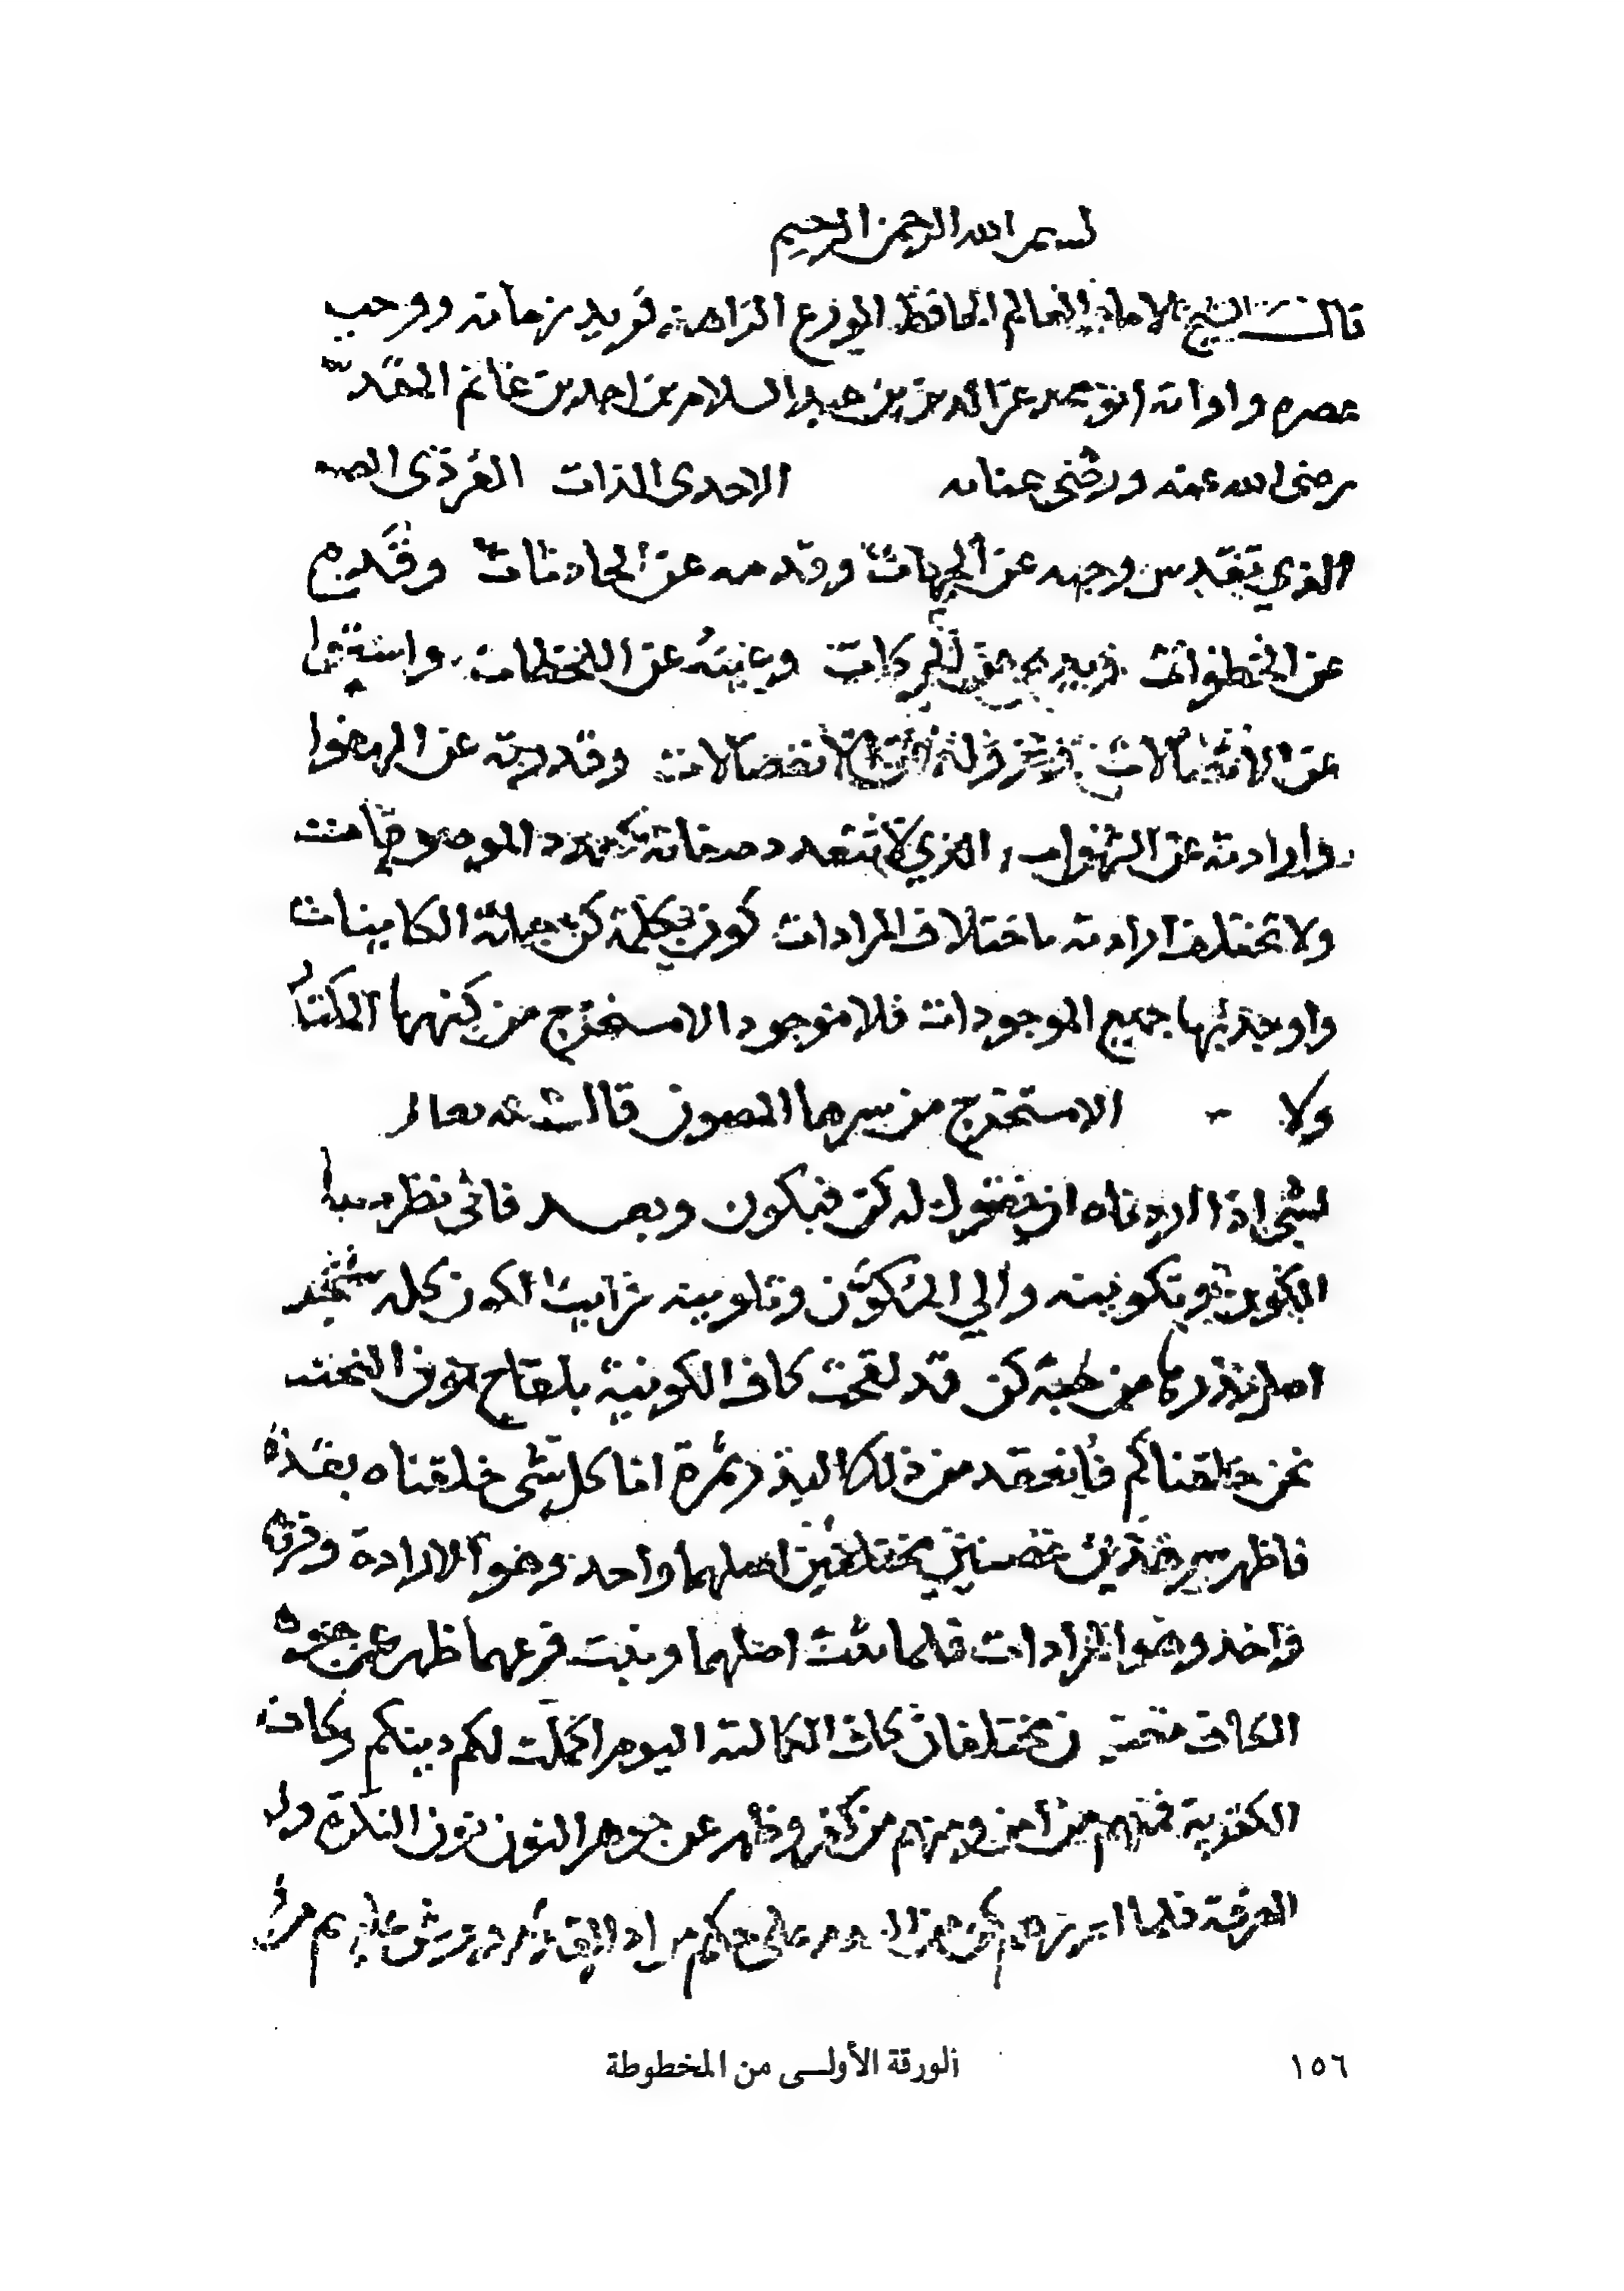 بسم الله الرحمن الرحيم
قال الشيخ الامام العالم الحافظ الورع الزاهد فريد زمانه ووحيد
عصره واوانه ابو محمد عز الدين بن عبد السلام بن احمد بن غانم المقد
رضى الله عنه ورضى عنا به الاحدى الذات الفردى الصـ
الذي تقدس وجهه عن الجهات وقدسه عن الحادثات وقدم
عن الخطوات ويده عن الحركات وعينه عن اللحظات واستوا
عن الاتصالات وقدرته عن الهفوا
وارادته عن الشهوات الذي لا تتعدد صفاته بتعدد الموصوفات
ولا تختلف ارادته باختلاف المرادات كون بكلمة كن جملة الكاينات
واوجد بها جميع الموجودات فلا موجود الا مستخرج من كنهها المكنـ
ولا الا مستخرج من سرها المصون قال الله تعالى
لشى اذا اردناه ان نقول له كن فيكون وبعد فانى نظرت
الكون وتكوينه والى المكون وتلوينه فرايت الكون كله شجر
اصل بذرها من حبة كن قد لقحت كاف الكونية بلقاح حبة
نحن خلقناكم فانعقد من ذلك البذر ثمرة انا كل شى خلقناه بقد
فاظهر من هذين غصنين مختلفين اصلهما واحد وهو الارادة وفرعها
واحد وهو المرادات اصلهما وثبت فرعهما ظهر عن جوهر
الكاف ن مختلفان كاف الكمالية اليوم اكملت لكم دينكم وكاف
الكفرية فمنهم من آمن ومنهم من كفر وظهر عن جوهر النون نون النكرة ونو
المعرفة فلما ابرزهم من كن العدم على حكم مراد القدم ورش عليهم من
١٥٦ الورقة الأولى من المخطوطة